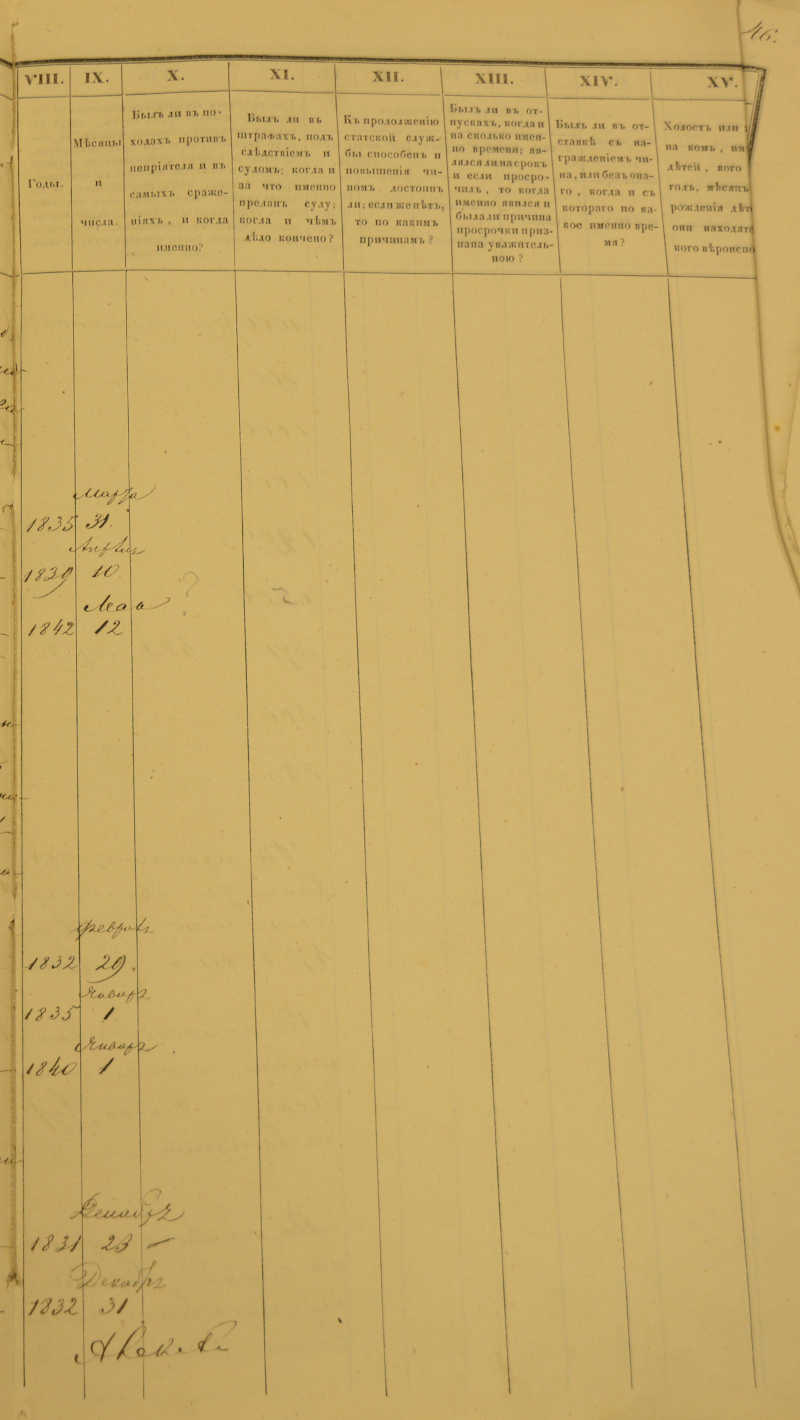 46.
VIII.
IX.
X.
XI.
XII.
XIII.
XIV.
XV.
Годы.
Мѣсяцы
и
числа.
Былъ ли въ по-
ходахъ противъ
непріятеля и въ
самыхъ сраже-
ніяхъ, и когда
именно?
Былъ ли въ
штрафахъ, подъ
слѣдствіемъ и
судомъ; когда и
за что именно
преданъ суду;
когда и чѣмъ
дѣло кончено?
Къ продолженію
статской служ-
бы способенъ и
повышенія чи-
номъ достоинъ
ли; если же нѣтъ,
то по какимъ
причинамъ?
Былъ ли въ от-
пускахъ, когда и
на сколько имен-
но времени; яв-
лялся ли на срокъ
и если просро-
чилъ, то когда
именно явился и
была ли причина
просрочки приз-
нана уважитель-
ною?
Былъ ли въ от-
ставкѣ съ на-
гражденіемъ чи-
на, или безъ она-
го, когда и съ
котораго по ка-
кое именно вре-
мя?
Холостъ или
на комъ, им
дѣтей, кого
годъ, мѣсяцъ
рожденія дѣт
они находят
кого вѣроиспо
Марта
1835 31.
1839 10
1842 12
Февра
1832 29.
Январ
1835 1
Январ
1840 1
1831 23
Декабр
1832 31